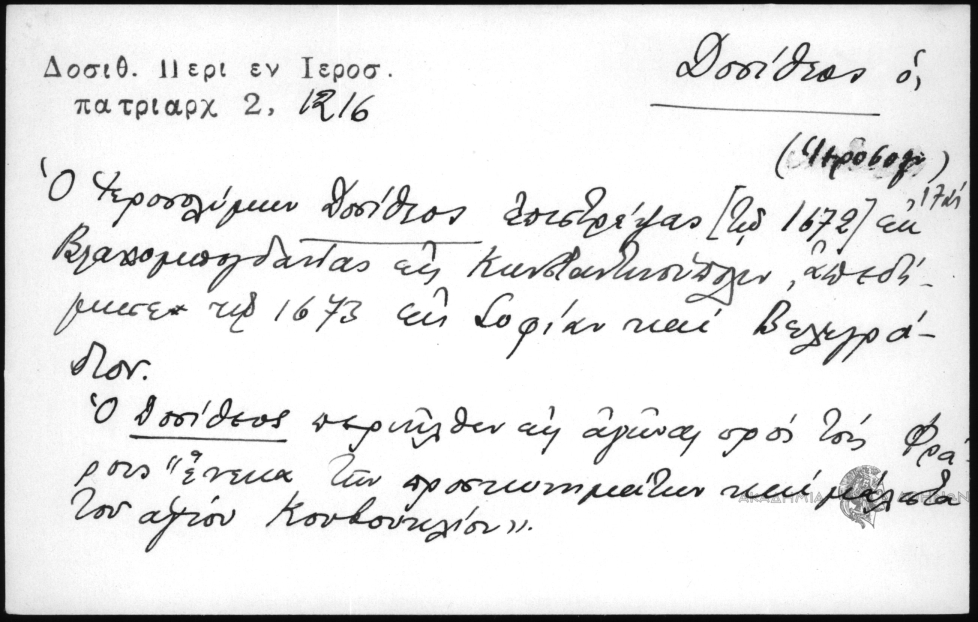 Δοσιθ. Περι εν Ιεροσ.
πατριαρχ 2, 1216
Δοσίθεος ὁ,
(Ἱεροσολ)
Ὁ Ἱεροσολύμων Δοσίθεος ἐπιστρέψας [τῷ 1672] ἐκ
Βλαχομπογδανίας εἰς Κωνσταντινούπολιν, ἀπεδή-
μησε τῷ 1673 εἰς Σοφίαν καὶ Βελεγρά-
διον.
Ὁ Δοσίθεος περιῆλθεν εἰς ἀγῶνας πρὸς τοὺς Φρά-
ρους "ἕνεκα τῶν προσκυνημάτων καὶ μάλιστα
τοῦ ἁγίου Κουβουκλίου".
ΑΚΑΔΗΜΙΑ